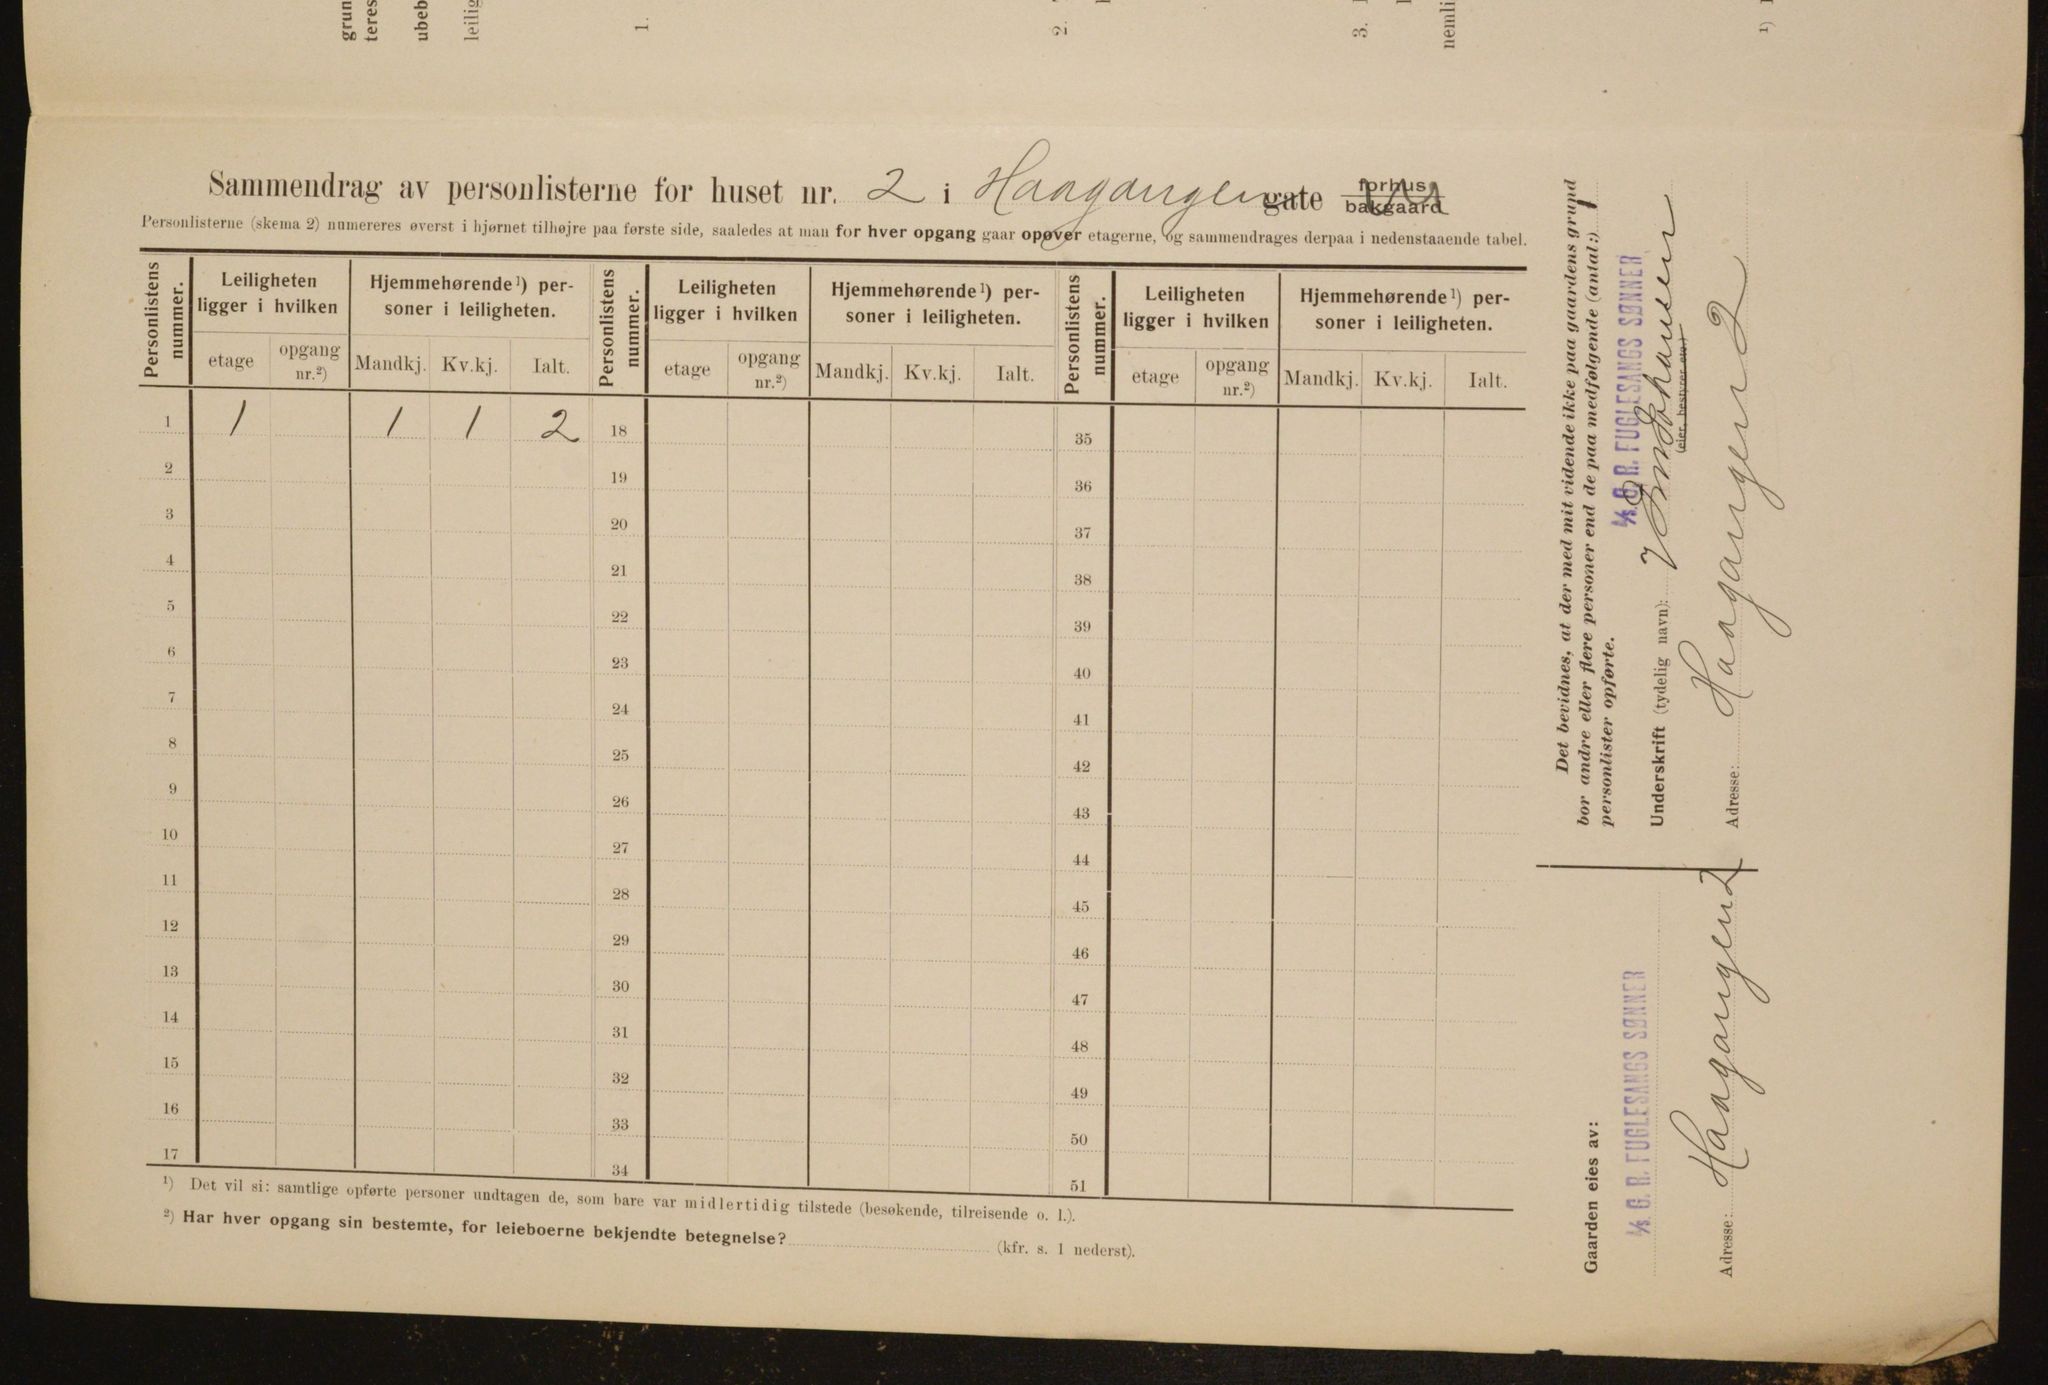 grun
teres
ubeb
leilig
1.
2.
3.
nemli
1)
Sammendrag av personlisterne for huset nr. 2 i Haagangen gate forhus bakgaard
Personlisterne (skema 2) numereres øverst i hjørnet tilhøjre paa første side, saaledes at man for hver opgang gaar opover etagerne, og sammendrages derpaa i nedenstaaende tabel.
Personlistens nummer. Leiligheten ligger i hvilken Hjemmehørende¹) personer i leiligheten. Personlistens nummer. Leiligheten ligger i hvilken Hjemmehørende¹) personer i leiligheten. Personlistens nummer. Leiligheten ligger i hvilken Hjemmehørende¹) personer i leiligheten.
etage opgang nr.²) Mandkj. Kv.kj. Ialt. etage opgang nr.²) Mandkj. Kv.kj. Ialt. etage opgang nr.²) Mandkj. Kv.kj. Ialt.
1 1 1 1 2 18 35
2 19 36
3 20 37
4 21 38
5 22 39
6 23 40
7 24 41
8 25 42
9 26 43
10 27 44
11 28 45
12 29 46
13 30 47
14 31 48
15 32 49
16 33 50
17 34 51
¹) Det vil si: samtlige opførte personer undtagen de, som bare var midlertidig tilstede (besøkende, tilreisende o. l.).
²) Har hver opgang sin bestemte, for leieboerne bekjendte betegnelse? (kfr. s. 1 nederst).
Det bevidnes, at der med mit vidende ikke paa gaardens grund
bor andre eller flere personer end de paa medfølgende (antal:) 1
personlister opførte.
A/S G. R. FUGLESANGS SØNNER
Underskrift (tydelig navn): Johansen
(eier, bestyrer etc.)
Adresse: Haagangen 2
Gaarden eies av:
A/S G. R. FUGLESANGS SØNNER
Adresse: Haagangen 2